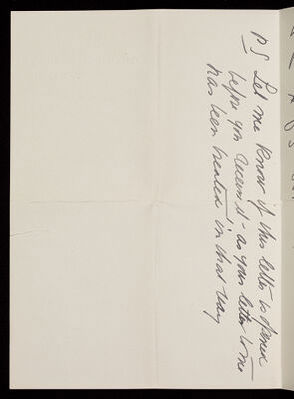 P.S Let me know if this letter is opened
before you receive it - as your letter to me
has been treated in that way